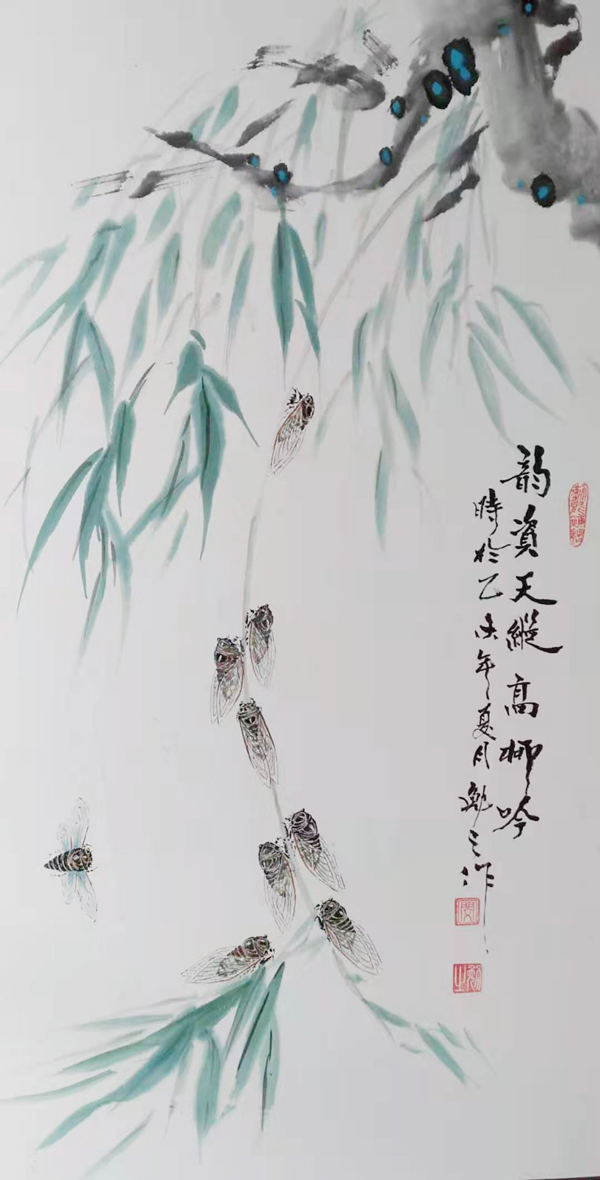 韵資天縱高柳吟
時於乙未年夏月勉之作